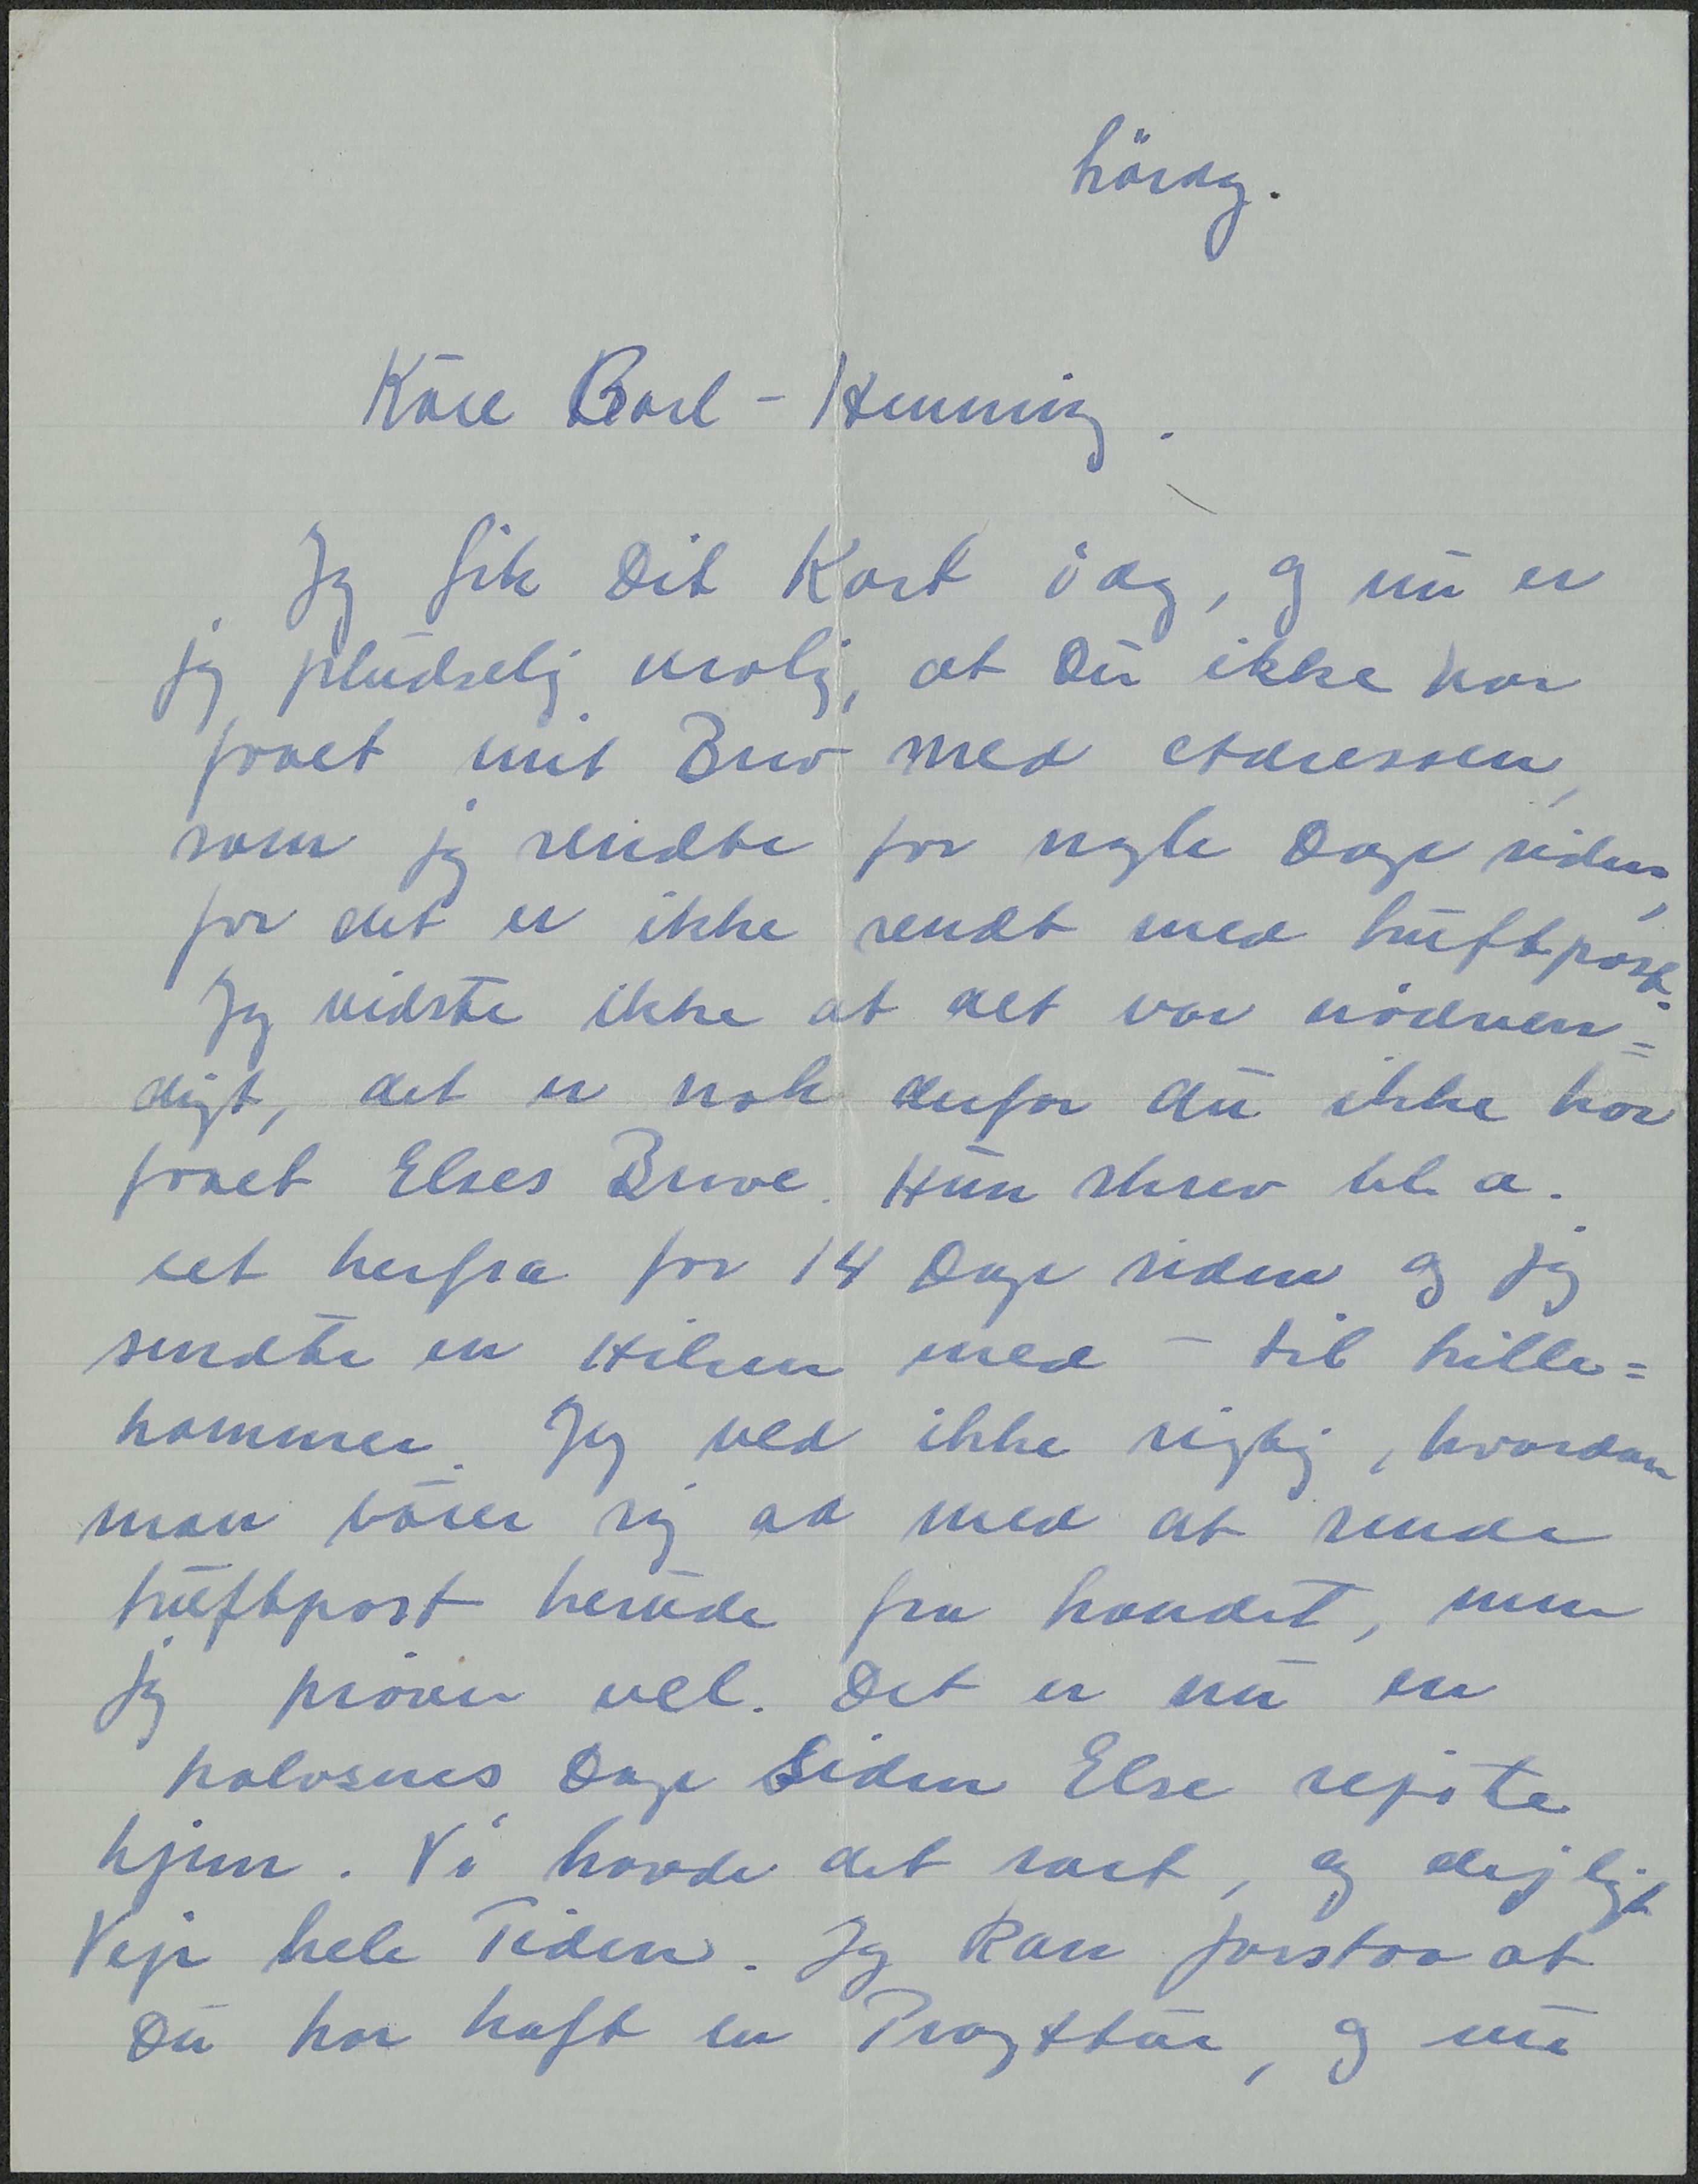 Lördag.
Käre Carl-Henning.
Jeg fik Dit Kort idag, og nu er
jeg pludselig urolig, at Du ikke har
faaet mit Brev med Adressen,
som jeg sendte for nogle Dage siden,
for det er ikke sendt med Luftpost.
Jeg vidste ikke at det var nödven=
digt, det er nok derfor du ikke har
faaet Elses Breve. Hun skrev bl. a.
eet herfra for 14 Dage siden og jeg
sendte en Hilsen med - til Lille=
hammer. Jeg ved ikke rigtig, hvordan
man bärer sig ad med at sende
Luftpost herude fra Landet, men
jeg pröver vel. Det er nu en
halvsnes Dage Siden Else rejste
hjem. Vi havde det rart, og dejligt
Vejr hele Tiden. Jeg kan forstaa at
Du har haft en Pragttur, og nu